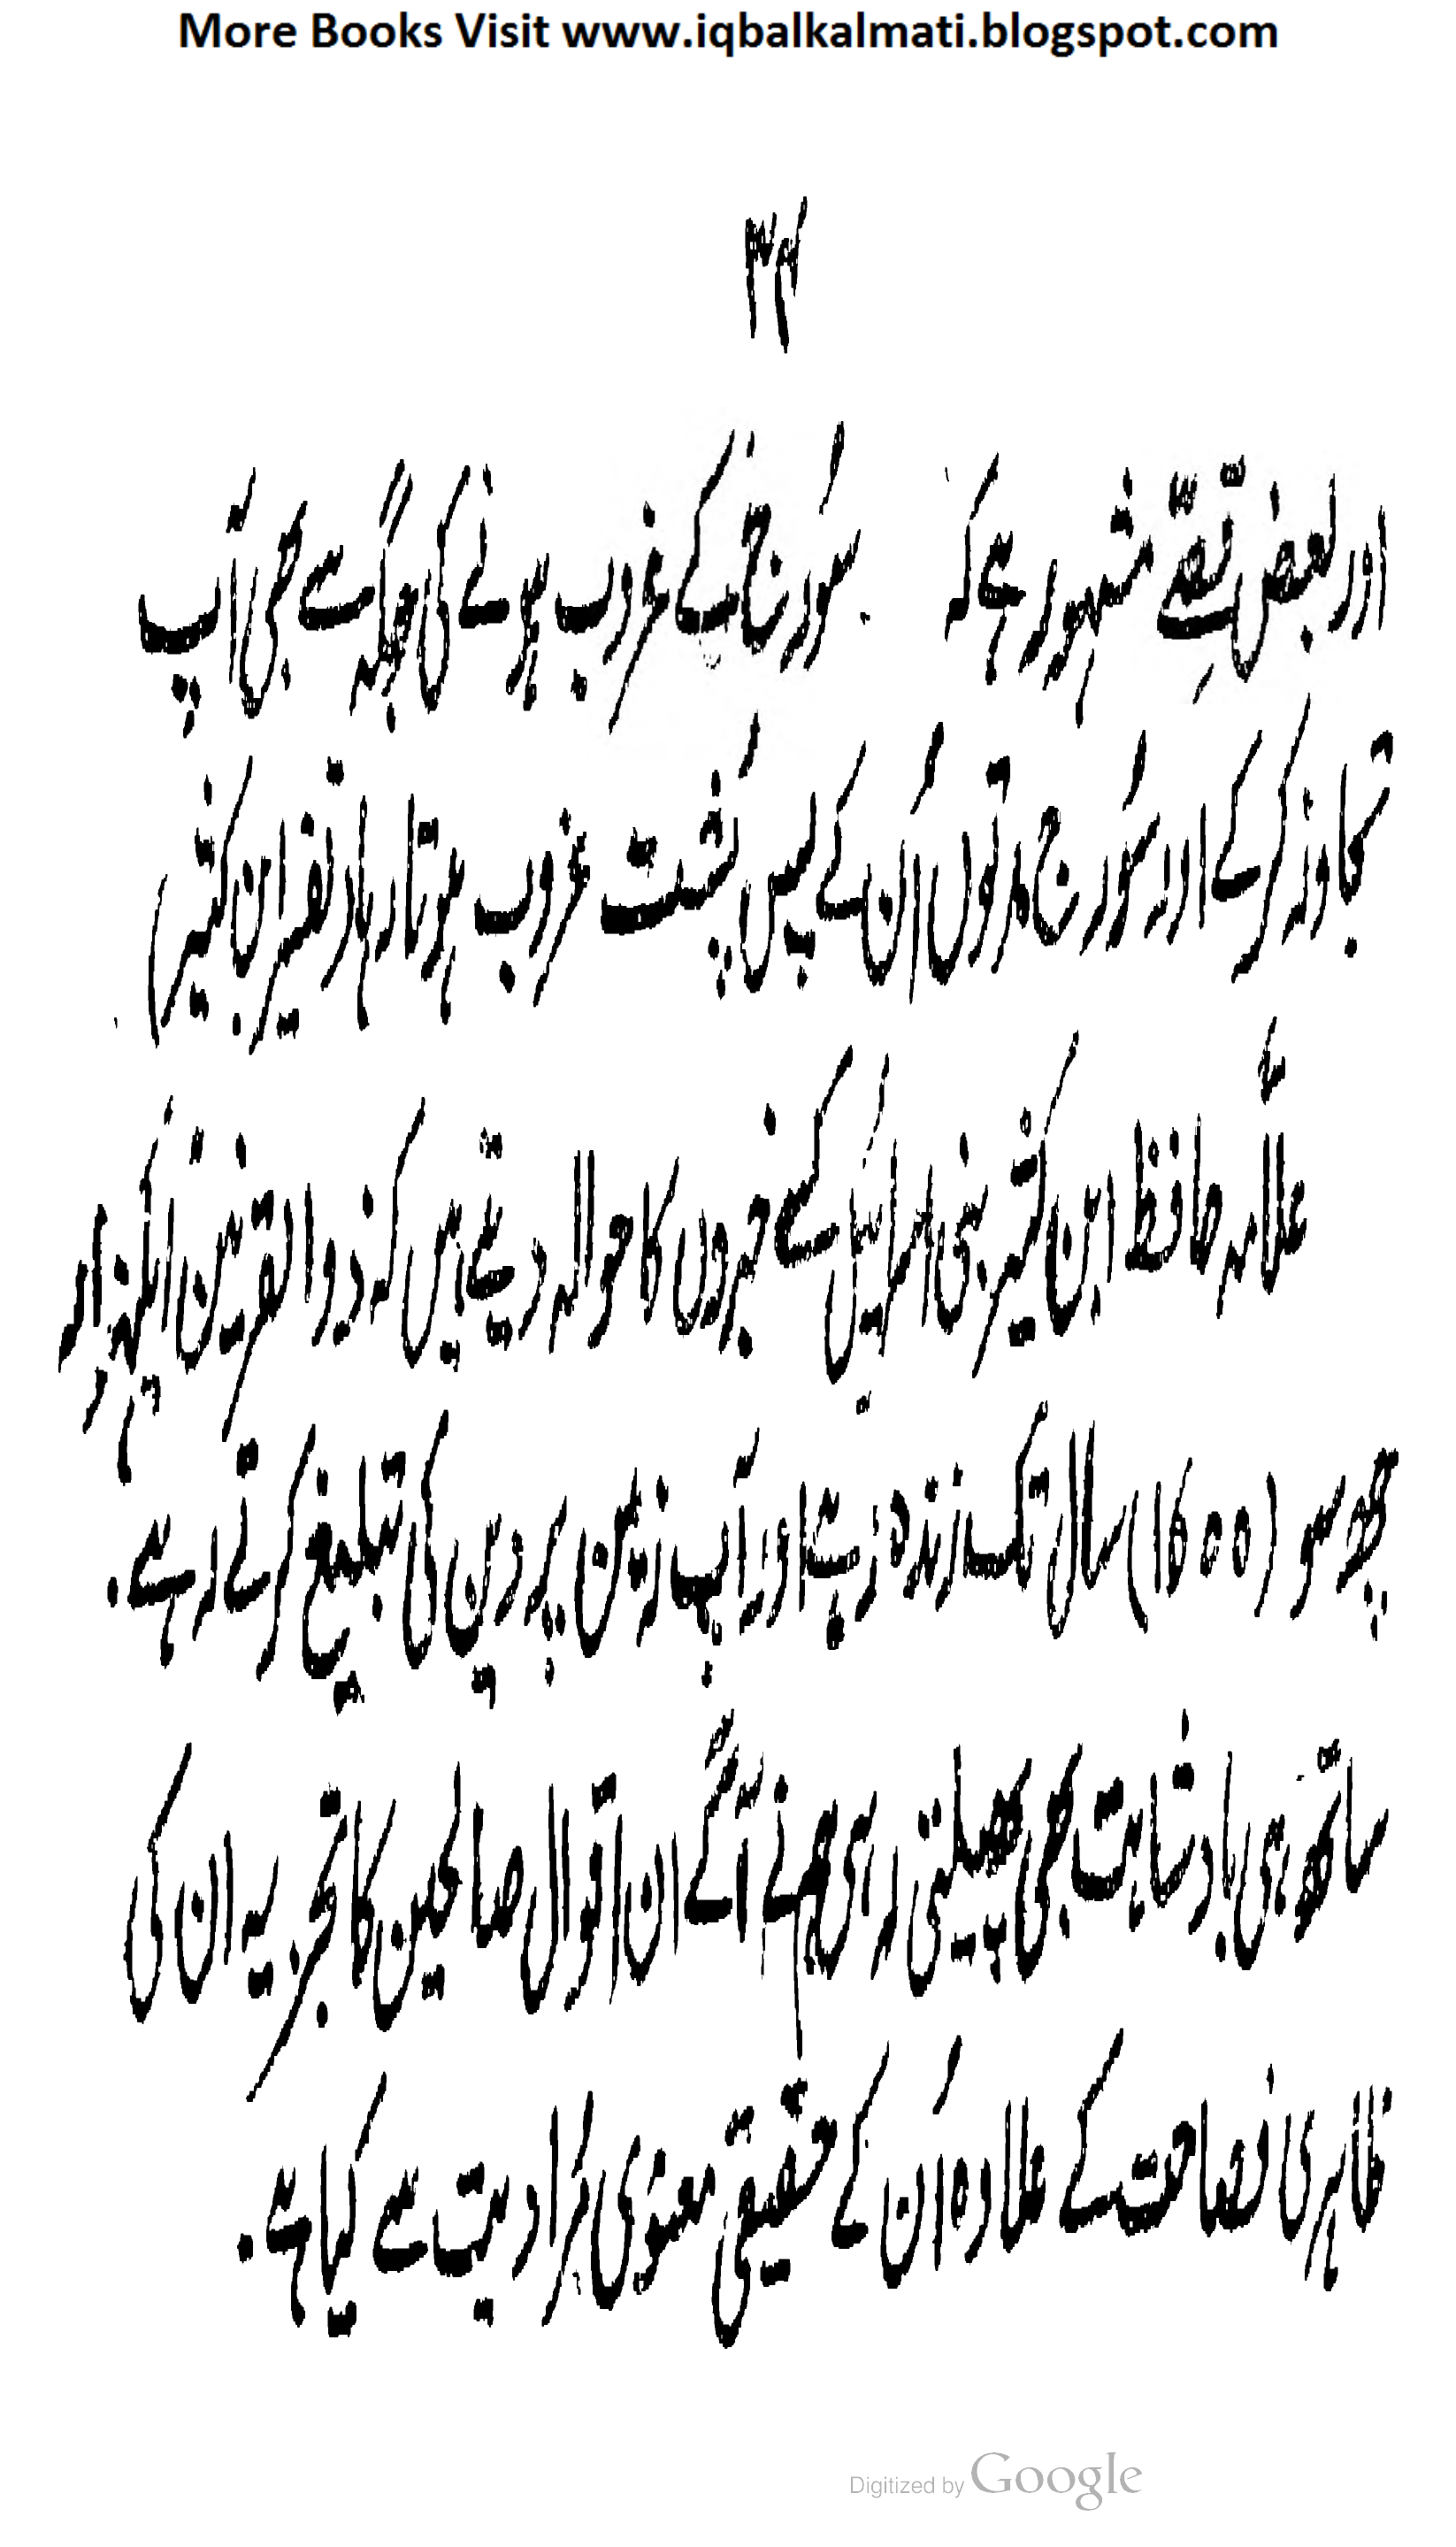 More Books Visit www.iqbalkalmati.blogspot.com
۳۴
اور بعض قصّے مشہور ہے کہ سُورج کے غروب ہونے کی جگہ سے بھی آپ
تجاوز کر گے اور سُورج مدتوں اُن کے پس پُشت غروب ہوتا رہا (تفسیر ابن کثیر)
علامہ حافظ ابن کثیر بنی اسرائیل کے خبروں کا حوالہ دیتے ہیں کہ ذوالقرنین ایکہزار
چھ سو (1600) سال تک زندہ رہے اور آپ زمین پر دین کی تبلیغ کرتے رہے۔
ساتھ ہی بادشاہت بھی پھیلتی رہی ہم نے آگے ان اقوال صالحین کا تجزیہ ان کی
ظاہری فصاحت کے علاوہ اُن کے حقیقی معنوی مُرادیت سے کیا ہے۔
Digitized by Google